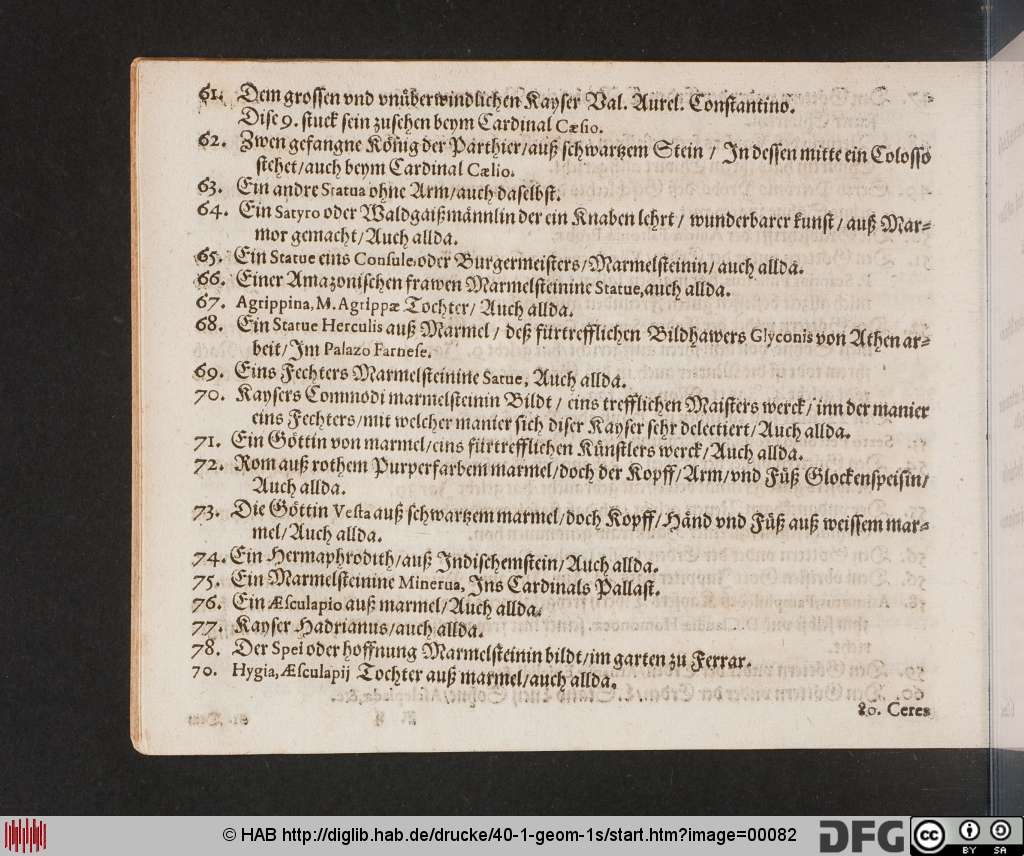 61. Dem grossen vnd vnüberwindlichen Kayser Val. Aurel. Constantino.
Dise 9. stuck sein zusehen beym Cardinal Cælio.
62. Zwen gefangne König der Parthier/auß schwartzem Stein / In dessen mitte ein Colosso
stehet/auch beym Cardinal Cælio.
63. Ein andre Statua ohne Arm/auch daselbst.
64. Ein Satyro oder Waldgaißmännlin der ein Knaben lehrt / wunderbarer kunst / auß Mar-
mor gemacht/Auch allda.
65. Ein Statue eins Consule,oder Burgermeisters/Marmelsteinin/ auch allda.
66. Einer Amazonischen frawen Marmelsteinine Statue,auch allda.
67. Agrippina, M. Agrippæ Tochter/ Auch allda.
68. Ein Statue Herculis auß Marmel / deß fürtrefflichen Bildhawers Glyconis von Athen ar-
beit/Im Palazo Farnese.
69. Eins Fechters Marmelsteinine Satue, Auch allda.
70. Kaysers Commodi marmelsteinin Bildt / eins trefflichen Maisters werck/ inn der manier
eins Fechters/mit welcher manier sich diser Kayser sehr delectiert/Auch allda.
71. Ein Göttin von marmel/eins fürtrefflichen Künstlers werck/Auch allda.
72. Rom auß rothem Purperfarbem marmel/doch der Kopff/Arm/vnd Füß Glockenspeisin/
Auch allda.
73. Die Göttin Vesta auß schwartzem marmel/doch Kopff/Händ vnd Füß auß weissem mar-
mel/Auch allda.
74. Ein Hermaphrodith/auß Indischemstein/Auch allda.
75. Ein Marmelsteinine Minerua, Ins Cardinals Pallast.
76. Ein Æsculapio auß marmel/Auch allda.
77. Kayser Hadrianus/auch allda.
78. Der Spei oder hoffnung Marmelsteinin bildt/im garten zu Ferrar.
70. Hygia, Æsculapij Tochter auß marmel/auch allda.
80. Ceres
© HAB http://diglib.hab.de/drucke/40-1-geom-1s/start.htm?image=00082
DFG
cc BY SA